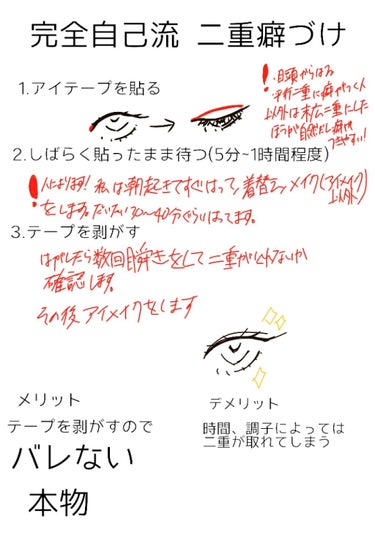 完全自己流 二重癖づけ
1.アイテープを貼る
・目頭からはる
平行二重に癖がつく人
以外は末広二重にした
ほうが自然だし癖が
つきやすい!
2.しばらく貼ったまま待つ(5分~1時間程度)
人によります! 私は朝起きてすぐはって、着替え、メイク(アイメイク
以外)
をします。だいたい30〜40分ぐらいはってます。
3.テープを剥がす
はがしたら数回瞬きをして二重がとれないか
確認します。
その後アイメイクをします
メリット
テープを剥がすので
バレない
本物
デメリット
時間、調子によっては
二重が取れてしまう